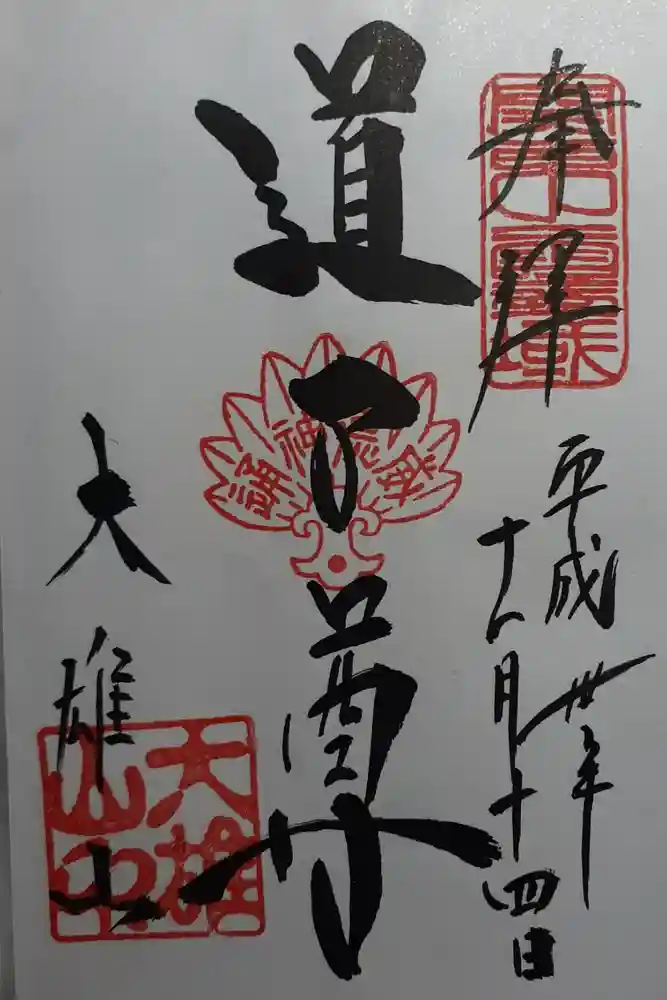 奉拝
平成卅年
十一月十四日
道了尊
大雄山
大雄山印